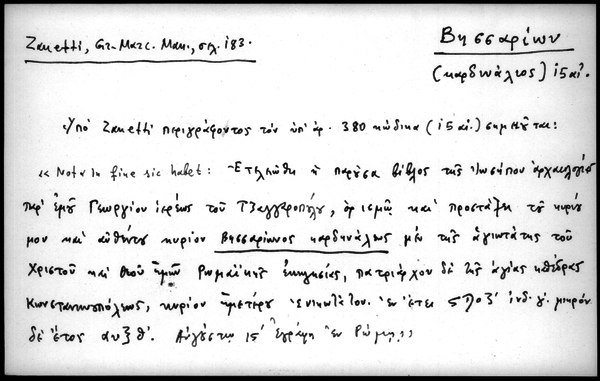 Zanetti, Gr. Marc. Man., σελ. 183.
Βησσαρίων
(καρδινάλιος) 15 αἰ.
Ὑπὸ Zanetti περιγράφοντος τὸν ὑπ' ἀρ. 380 κώδικα (15 αἰ.) σημειοῦται:
« Nota in fine sic habet: Ἐτελειώθη ἡ παροῦσα βίβλος τῆς Ἰωσήπου ἀρχαιολογίας
παρ' ἐμοῦ Γεωργίου ἱερέως τοῦ Τζαγγαροπούλου, ὁρισμῷ καὶ προστάξει τοῦ κυρίου
μου καὶ αὐθέντου κυρίου Βησσαρίωνος καρδηνάλεως μὲν τῆς ἁγιωτάτης τοῦ
Χριστοῦ καὶ Θεοῦ ἡμῶν Ῥωμαϊκῆς ἐκκλησίας, πατριάρχου δὲ τῆς ἁγίας καθέδρας
Κωνσταντινουπόλεως, κυρίου ἡμετέρου ἐν ἔτει ϛϡοζ' ἰνδ. γ'. μικρὸν
δὲ ἔτος αυξθ'. Αὐγούστῳ 15' Ἐγράφη ἐν Ῥώμῃ »